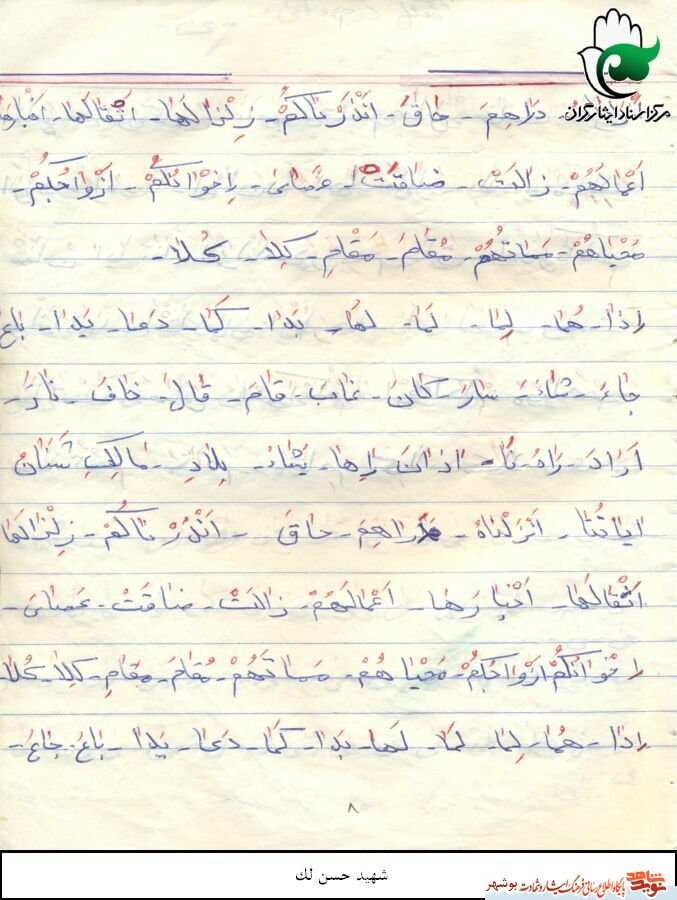 مرکز اسناد ایثارگران
دَراهِمَ - حاقَ - اَنْذَرْناکُمْ - زِلْزالَها - اَثْقالَها - اَخْبارَها
اَعْمالَهُمْ - زالَتْ - ضاقَتْ - عَصایَ - اِخْوانُکُمْ - اَزْواجُکُمْ -
مَحْیاهُمْ - مَماتُهُمْ - مُقامَ - مَقامِ - کِلا - کُلا -
اِذا - هُما - لِما - لَما - لَها - بَدا - کَما - دَعا - یَدا - باعَ
جاءَ - شاءَ - سارَ - کانَ - غابَ - قامَ - قالَ - خافَ - نارَ -
اَرادَ - راهَ - نا - اذانَ - اِها - یَشاءُ - بِلادِ - مالِکِ شَنَانُ
ایاتُنا - اَنْزَلْناهُ - دَراهِمَ - حاقَ - اَنْذَرْناکُمْ - زِلْزالَها
اَثْقالَها - اَخْبارَها - اَعْمالَهُمْ - زالَتْ - ضاقَتْ - عَصایَ -
اِخْوانُکُمْ اَزْواجُکُمْ - مَحْیاهُمْ - مَماتَهُمْ - مُقامَ - مَقامِ - کِلا - کُلا
اِذا - هُما - لِما - لَمَا - لَها - بَدا - کَما - دَعا - یَدا - باعَ - جاءَ -
۸
شهید حسن لك
نوید شاهد پایگاه اطلاع رسانی فرهنگ ایثار و شهادت بوشهر